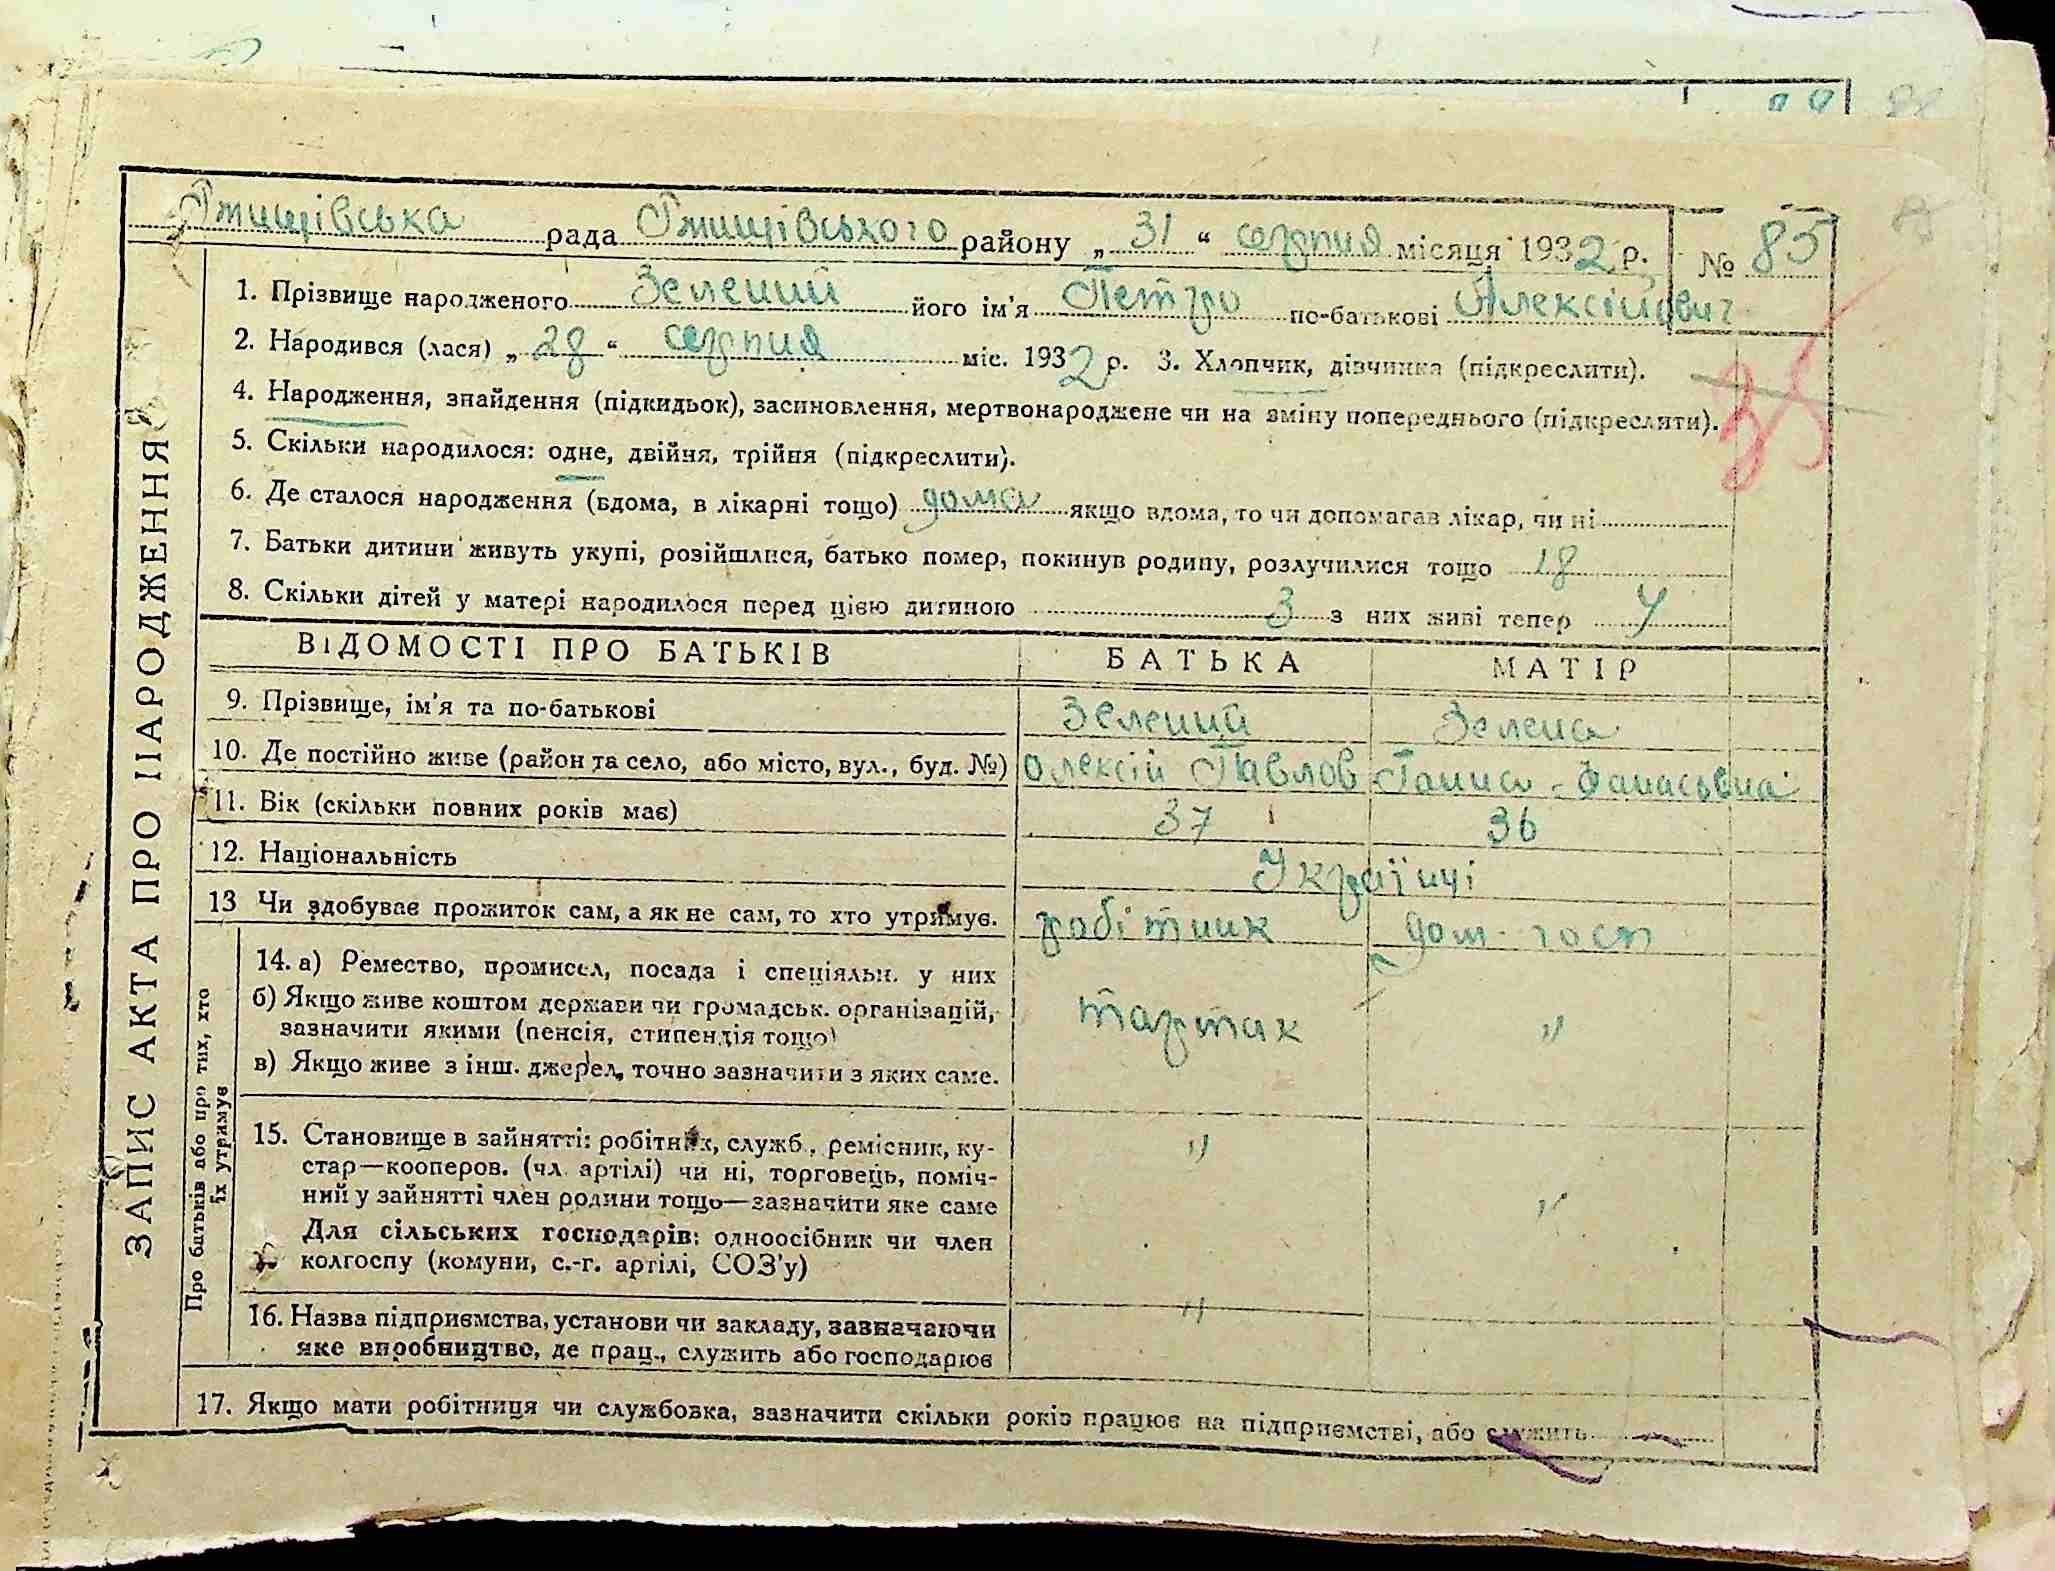 Гмищівська рада Гмищівського району „ 31 “ серпня місяця 1932 р. № 85
1. Прізвище народженого Зелений його ім'я Петро по-батькові Алексійович
2. Народився (лася) „ 28 “ серпня міс. 1932 р. 3. Хлопчик, дівчинка (підкреслити).
4. Народження, знайдення (підкидьок), засиновлення, мертвонароджене чи на зміну попереднього (підкреслити).
35
5. Скільки народилося: одне, двійня, трійня (підкреслити).
6. Де сталося народження (вдома, в лікарні тощо) дома якщо вдома, то чи допомагав лікар, чи ні
7. Батьки дитини живуть укупі, розійшлися, батько помер, покинув родину, розлучилися тощо 18
8. Скільки дітей у матері народилося перед цією дитиною 3 з них живі тепер 4
ВІДОМОСТІ ПРО БАТЬКІВ БАТЬКА МАТІР
9. Прізвище, ім'я та по-батькові Зелений Зелена
10. Де постійно живе (район та село, або місто, вул., буд. №) Олексій Павлов Ганна Панасьвна
11. Вік (скільки повних років має) 37 36
12. Національність Українці
13 Чи здобуває прожиток сам, а як не сам, то хто утримує. робітник дом. госп
14. а) Ремество, промисел, посада і спеціяльн. у них
б) Якщо живе коштом держави чи громадськ. організацій,
зазначити якими (пенсія, стипендія тощо) тартак "
в) Якщо живе з інш. джерел, точно зазначити з яких саме.
15. Становище в зайнятті: робітник, служб., ремісник, ку-
стар—кооперов. (чл. артілі) чи ні, торговець, поміч- "
ний у зайнятті член родини тощо—зазначити яке саме "
Для сільських господарів: одноосібник чи член
колгоспу (комуни, с.-г. артілі, СОЗ'у)
16. Назва підприємства, установи чи закладу, зазначаючи "
яке виробництво, де прац., служить або господарює
17. Якщо мати робітниця чи службовка, зазначити скільки років працює на підприємстві, або служить
ЗАПИС АКТА ПРО НАРОДЖЕННЯ
Про батьків або про тих, хто
їх утримує